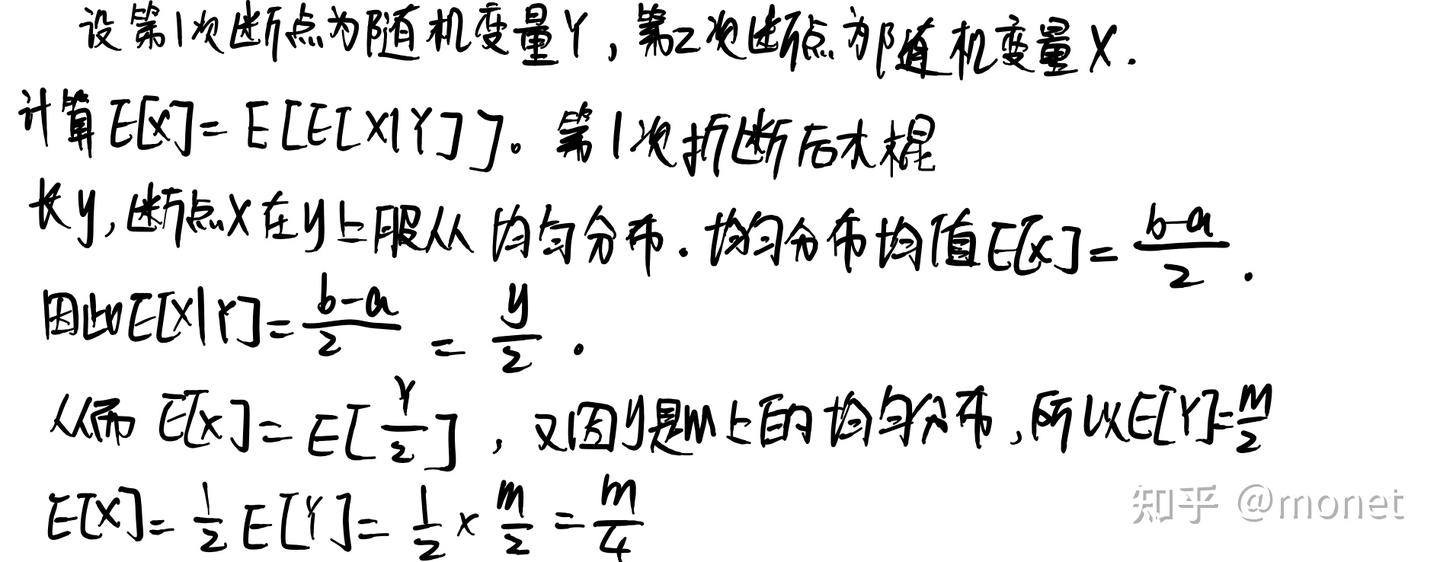 设第1次断点为随机变量Y，第2次断点为随机变量X.
计算E[X]=E[E[X|Y]]。第1次折断后木棍
长y,断点X在y上服从均匀分布.均匀分布均值E[X]=\frac{b-a}{2}.
因此E[X|Y]=\frac{b-a}{2}=\frac{y}{2}.
从而E[X]=E[\frac{Y}{2}],又因y是m上的均匀分布,所以E[Y]=\frac{m}{2}
E[X]=\frac{1}{2}E[Y]=\frac{1}{2}×\frac{m}{2}=\frac{m}{4}
知乎 @monet